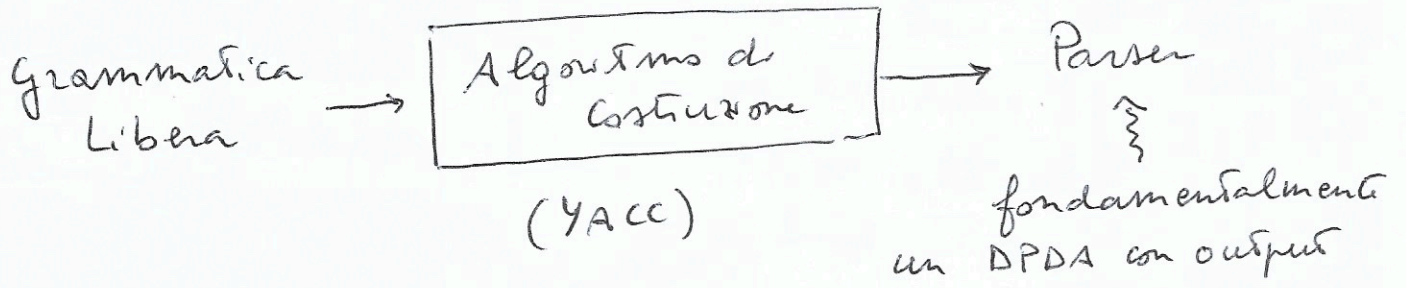 Grammatica
Libera
Algoritmo di
Costruzione
(YACC)
Parser
fondamentalmente
un DPDA con output